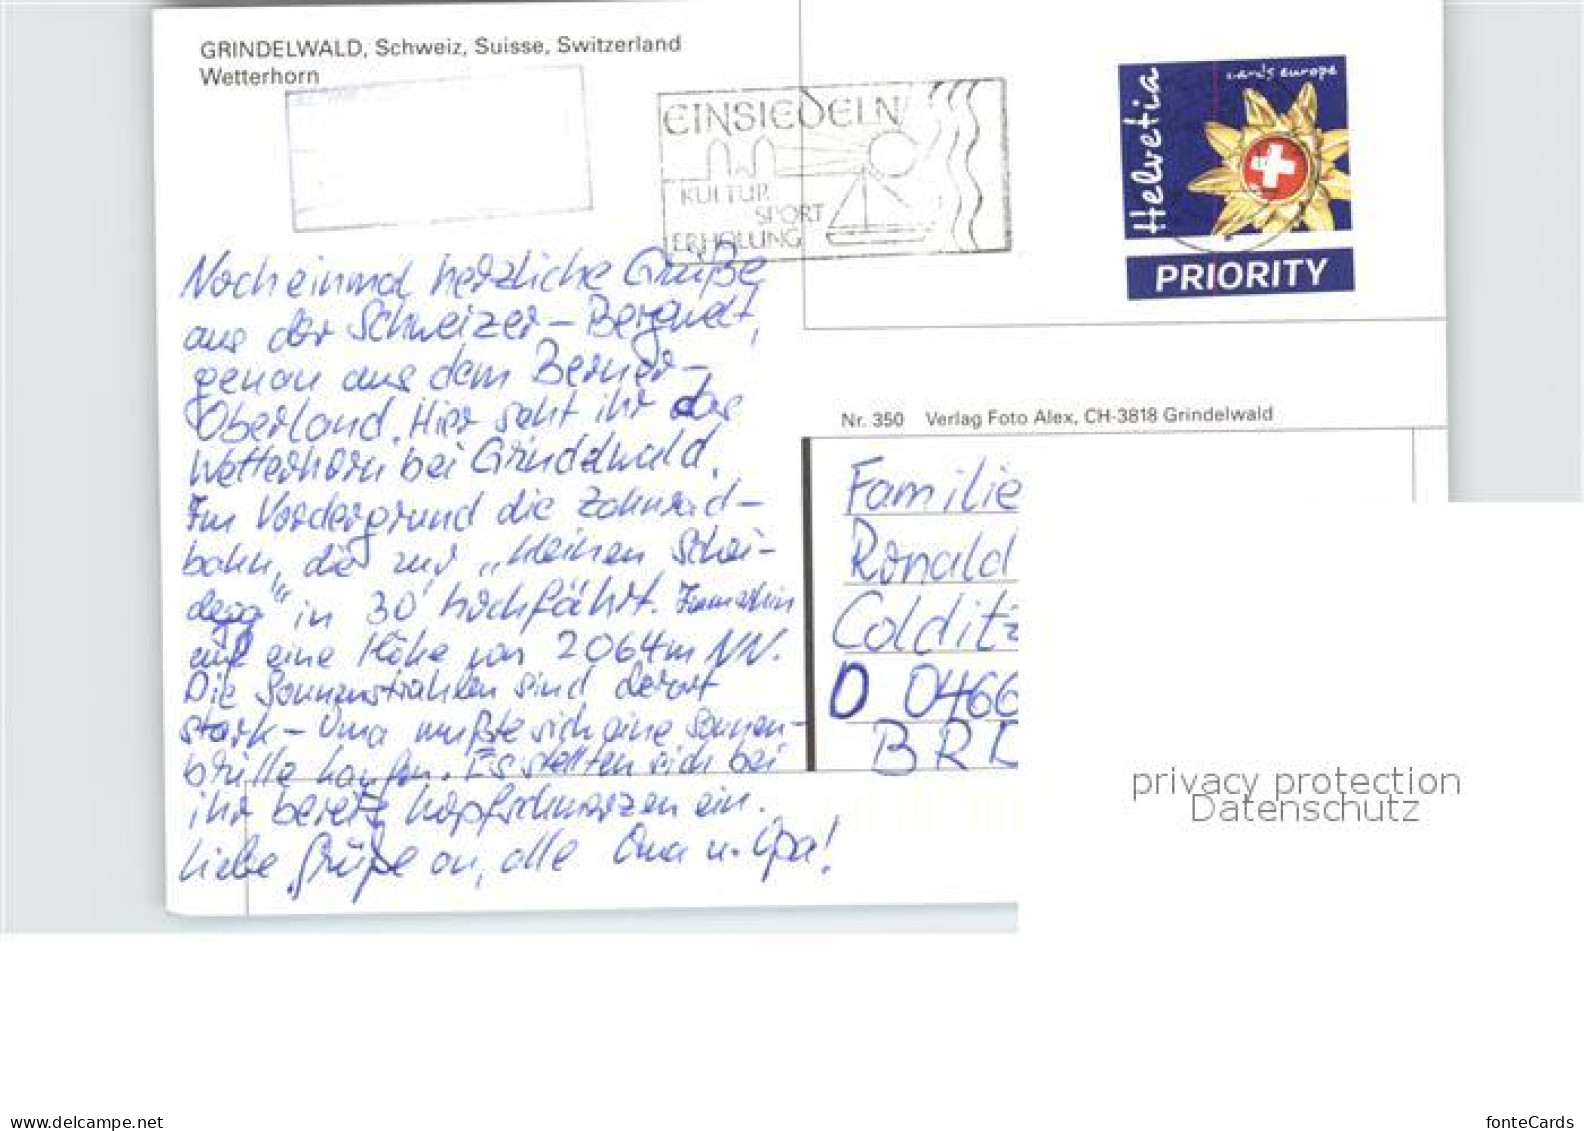 GRINDELWALD, Schweiz, Suisse, Switzerland
Wetterhorn
EINSIEDELN
KULTUR
SPORT
ERHOLUNG
Helvetia
cards europe
PRIORITY
Noch einmal herzliche Grüße
aus der Schweizer-Bergwelt,
genau aus dem Berner-
Oberland. Hier seht ihr das
Wetterhorn bei Grindelwald.
Im Vordergrund die Zahnrad-
bahn, die zur „kleinen Schei-
degg" in 30' hochfährt. Immerhin
auf eine Höhe von 2064m NN.
Die Sonnenstrahlen sind derart
stark - Oma mußte sich eine Sonnen-
brille kaufen. Es stellten sich bei
ihr bereits Kopfschmerzen ein.
Liebe Grüße an alle Oma u. Opa!
Nr. 350 Verlag Foto Alex, CH-3818 Grindelwald
Familie
Ronald
Colditz
D 0466
BRD
privacy protection
Datenschutz
www.delcampe.net
fonteCards